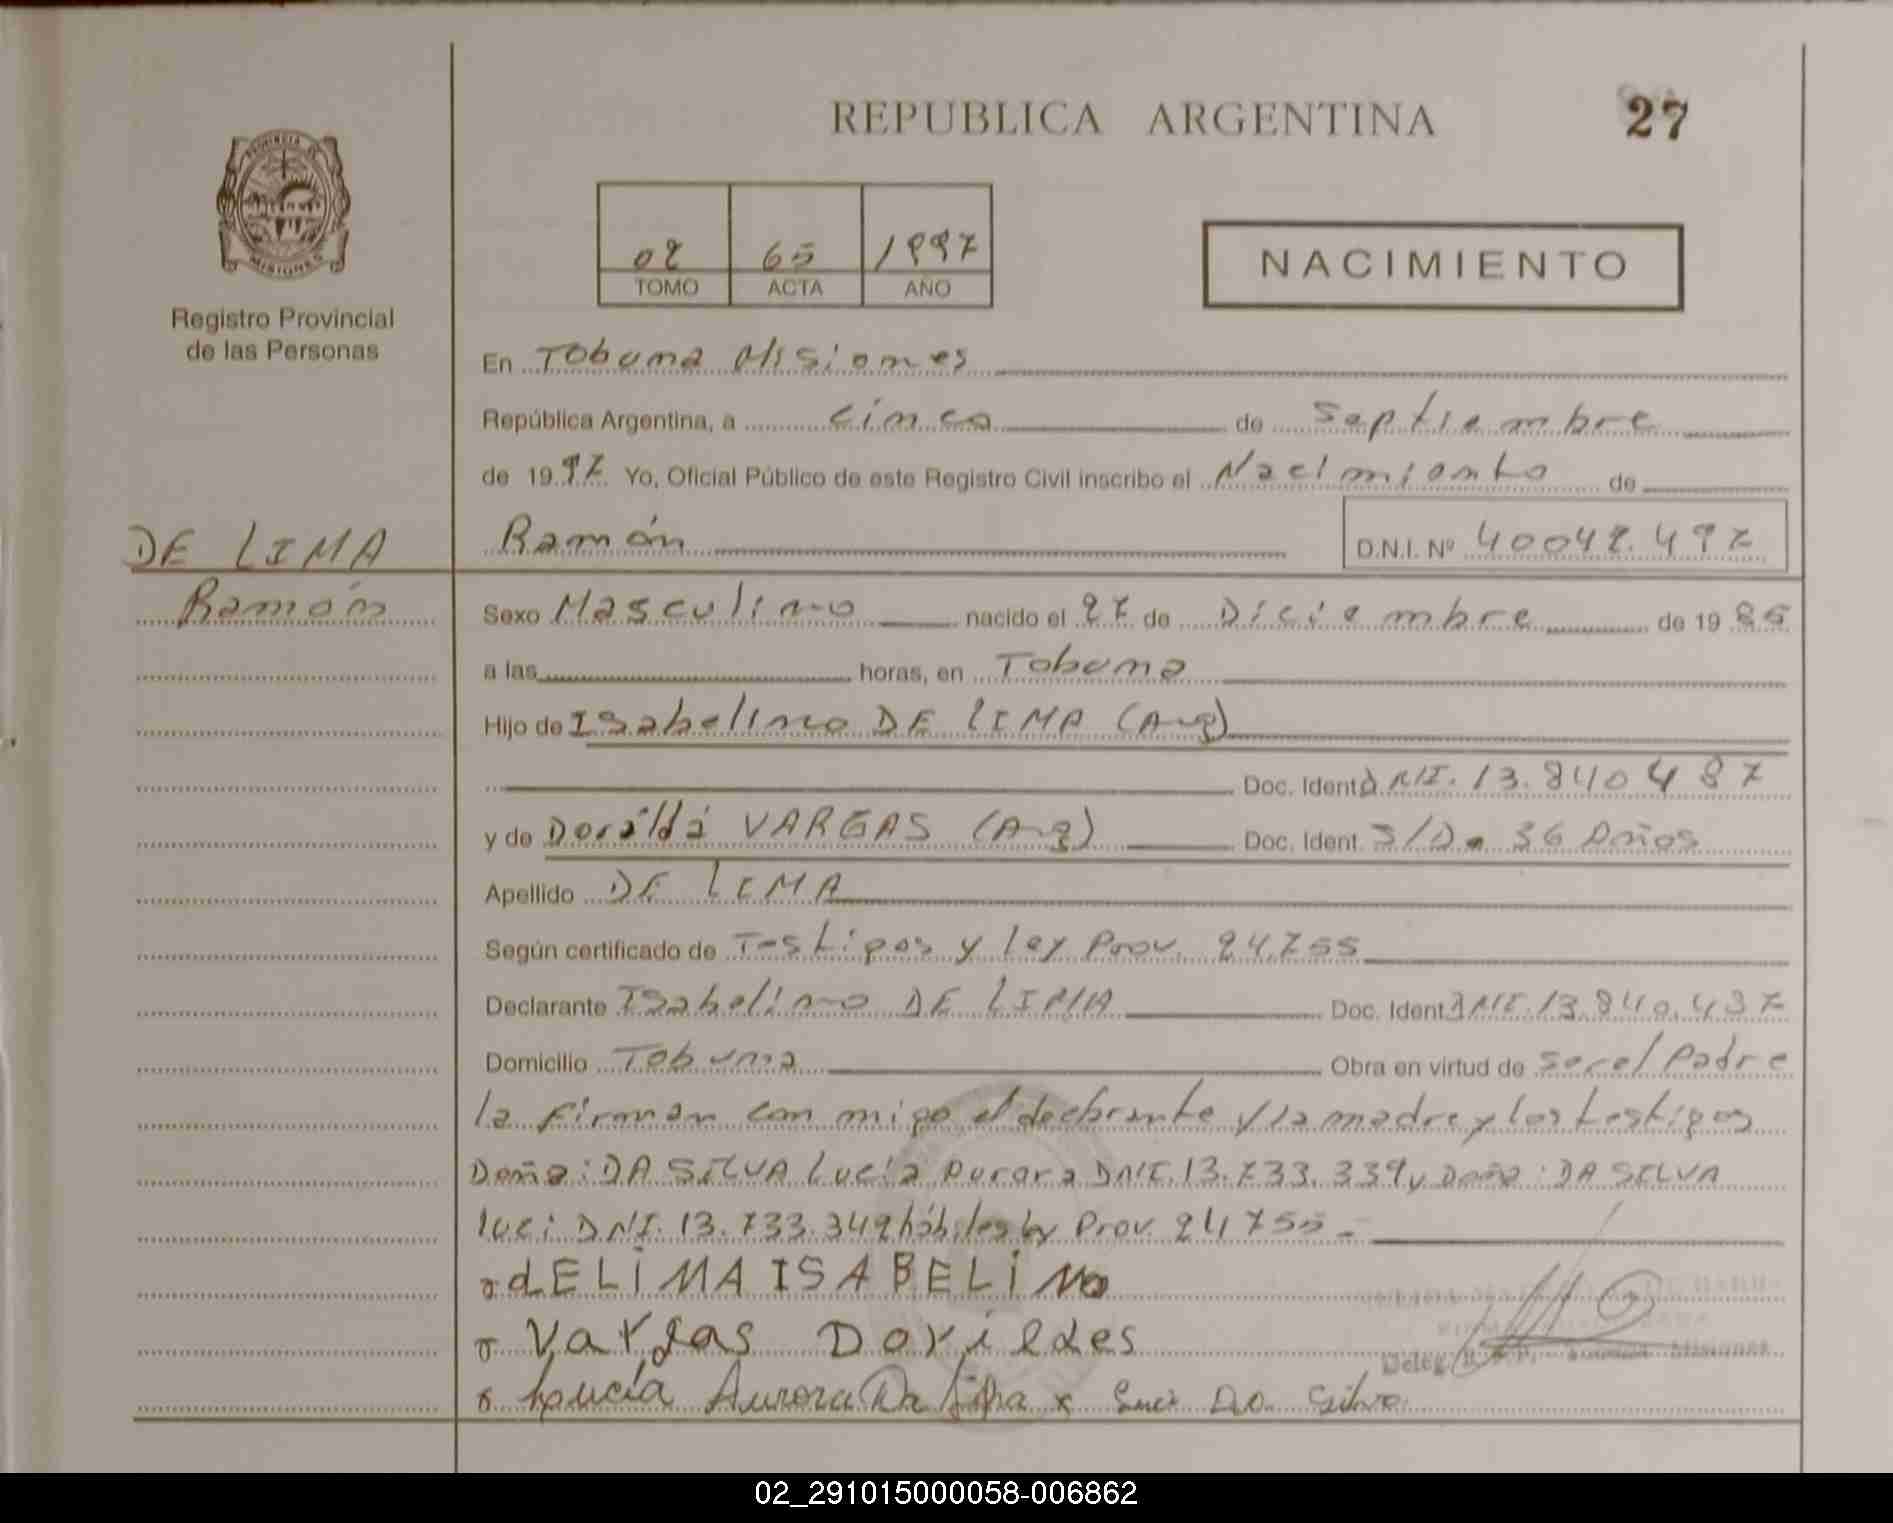 REPUBLICA ARGENTINA
27
PROVINCIA DE
MISIONES
Registro Provincial
de las Personas
02 65 1997
TOMO ACTA AÑO
NACIMIENTO
En Tobuna Misiones
República Argentina, a cinco de Septiembre
de 1997 Yo, Oficial Público de este Registro Civil inscribo el Nacimiento de
DE LIMA
Ramón
Ramón D.N.I. Nº 40042.497
Sexo Masculino nacido el 27 de Diciembre de 19
a las horas, en Tobuna
Hijo de Isabelino DE LIMA (Arg)
Doc. Ident DNI. 13.840487
y de VARGAS (Arg) Doc. Ident. S/D. 36 Años
Apellido DE LIMA
Según certificado de Testigos y ley Prov. 24.755
Declarante Isabelino DE LIMA Doc. Ident DNI.13.840.487
Domicilio Tobuna Obra en virtud de ser el Padre
la firman con migo el declarante y la madre y los testigos
Doña: DA SILVA Lucía Aurora DNI.13.733.339 y Doña: DA SILVA
luci DNI. 13.733.349 hábiles ley Prov. 24755-
dELiMA ISABELiNo
Vargas Dorildes
Deleg. Misiones
x Lucía Aurora Da Silva x Luci Da Silva
02_291015000058-006862